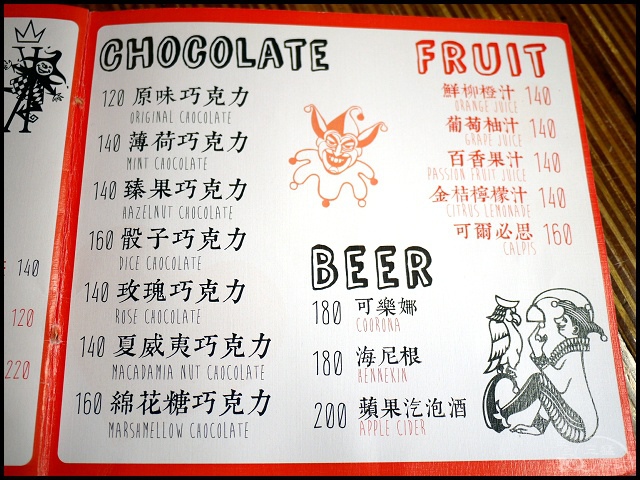 CHOCOLATE
120 原味巧克力
ORIGINAL CHOCOLATE
140 薄荷巧克力
MINT CHOCOLATE
140 臻果巧克力
HAZELNUT CHOCOLATE
160 骰子巧克力
DICE CHOCOLATE
140 玫瑰巧克力
ROSE CHOCOLATE
140 夏威夷巧克力
MACADAMIA NUT CHOCOLATE
160 綿花糖巧克力
MARSHMELLOW CHOCOLATE
FRUIT
鮮柳橙汁 140
ORANGE JUICE
葡萄柚汁 140
GRAPE JUICE
百香果汁 140
PASSION FRUIT JUICE
金桔檸檬汁 140
CITRUS LEMONADE
可爾必思 160
CALPIS
BEER
180 可樂娜
COORONA
180 海尼根
HENNEKIN
200 蘋果汽泡酒
APPLE CIDER
140
120
220